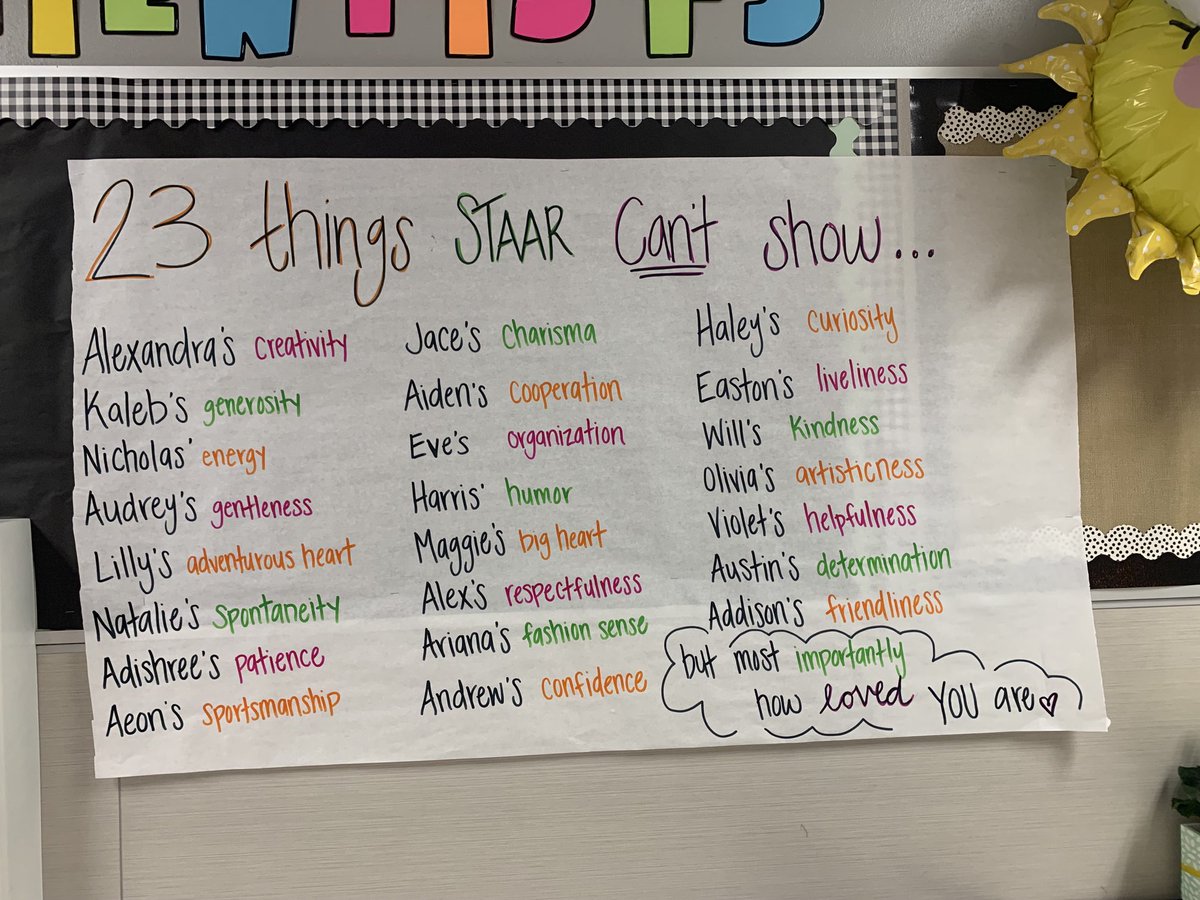 23 things STAAR Can't show...
Alexandra's creativity
Kaleb's generosity
Nicholas' energy
Audrey's gentleness
Lilly's adventurous heart
Natalie's spontaneity
Adishree's patience
Aeon's sportsmanship
Jace's charisma
Aiden's cooperation
Eve's organization
Harris' humor
Maggie's big heart
Alex's respectfulness
Ariana's fashion sense
Andrew's confidence
Haley's curiosity
Easton's liveliness
Will's kindness
Olivia's artisticness
Violet's helpfulness
Austin's determination
Addison's friendliness
but most importantly
how loved you are